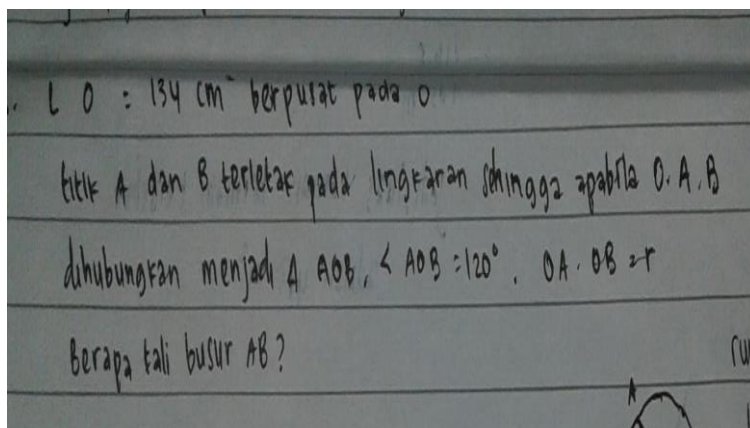 L O : 134 cm² berpusat pada O
titik A dan B terletak pada lingkaran sehingga apabila O, A, B
dihubungkan menjadi Δ AOB, < AOB = 120°, OA. OB = r
Berapa tali busur AB?
A